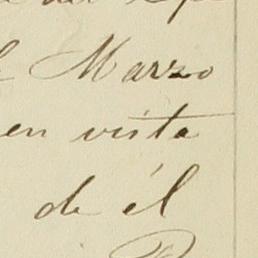 Marzo
en vista
de él